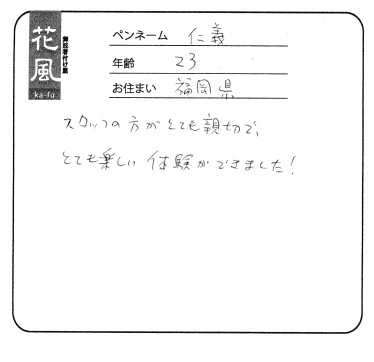 花風
ka-fu
舞妓着付け屋
ペンネーム 仁義
年齢 23
お住まい 福岡県
スタッフの方がとても親切で、
とても楽しい体験ができました!